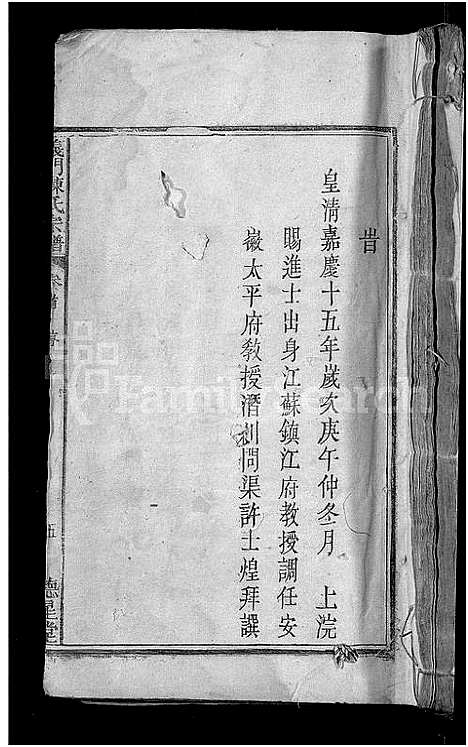 旹
皇清嘉慶十五年歲次庚午仲冬月 上浣
賜進士出身江蘇鎮江府教授調任安
徽太平府教授潛川問渠許士煌拜譔
義門陳氏宗譜 卷首
五 德星堂
FamilySearch